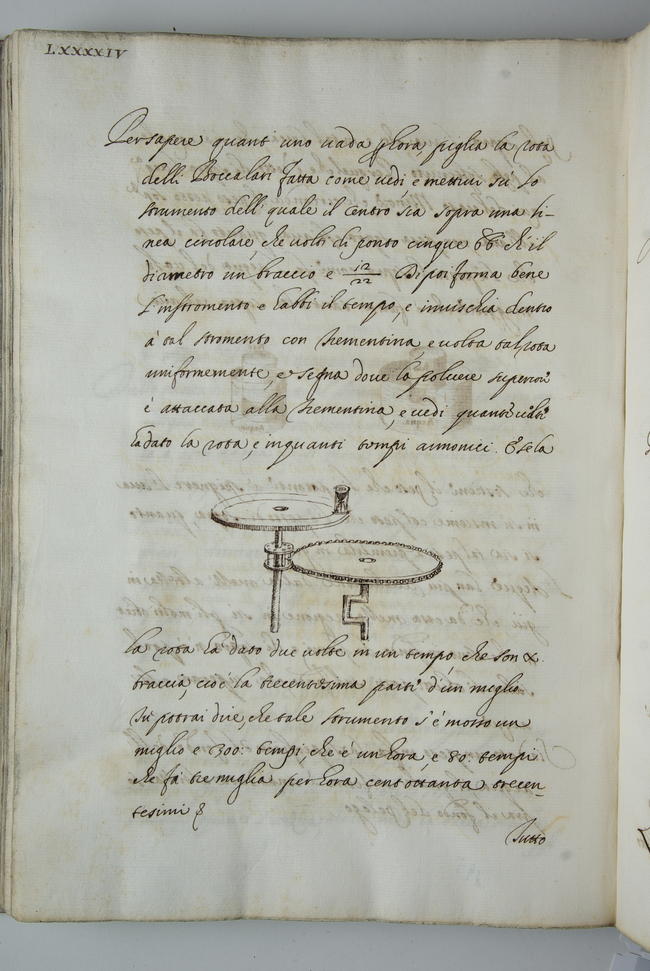 LXXXXIV
Per sapere quanto uno uada p hora, piglia la rota
delli Boccalari fatta come uedi e mettiui su lo
strumento dell' quale il centro sia sopra una li-
nea circolare, che uolti di ponto cinque bb.ª ch' il
diametro un braccio e 12/22 Di poi forma bene
l'instromento e habbi il tempo, e inuischia dentro
à tal stromento con trementina, e uolta tal rota
uniformemente, e segna doue la poluere superiore
è attaccata alla trementina, e uedi quante uolte
ha dato la rota, e in quanti tempi armonici. E se la
la rota ha dato due uolte in un tempo, che son X.
braccia, cioè la trecentesima parte d'un miglio
tu potrai dire, che tale strumento s'è mosso un
miglio e 300: tempi, che è un hora, e 80: tempi
che fa tre miglia per hora cent ottanta trecen-
tesimi
Tutto